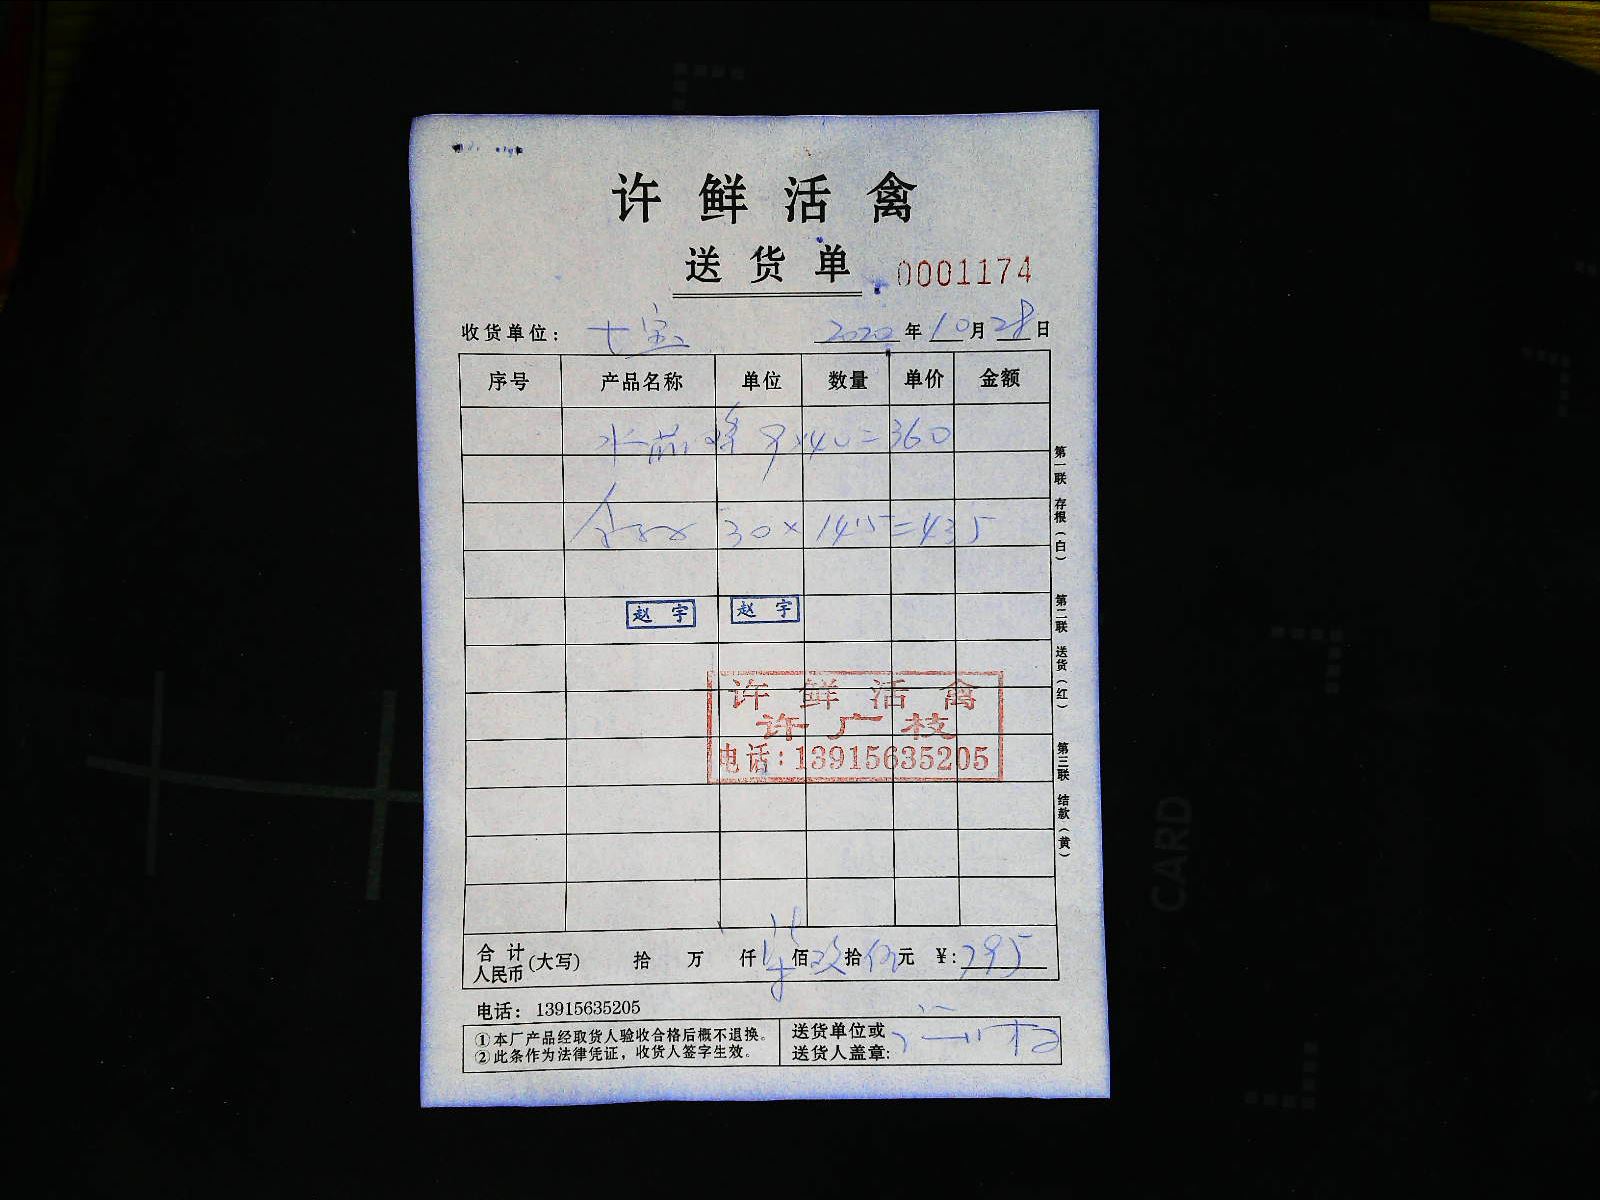 许鲜活禽
送货单 0001174
收货单位: 七宝 2020年10月28日
序号 产品名称 单位 数量 单价 金额
9×40=360
30×14.5=435
赵宇 赵宇
许鲜活禽
许广枝
电话:13915635205
第一联 存根(白)
第二联 送货(红)
第三联 结款(黄)
合计人民币(大写) 拾 万 仟 柒佰玖拾伍元 ¥:795
电话: 13915635205
①本厂产品经取货人验收合格后概不退换。
②此条作为法律凭证，收货人签字生效。
送货单位或
送货人盖章:
CARD